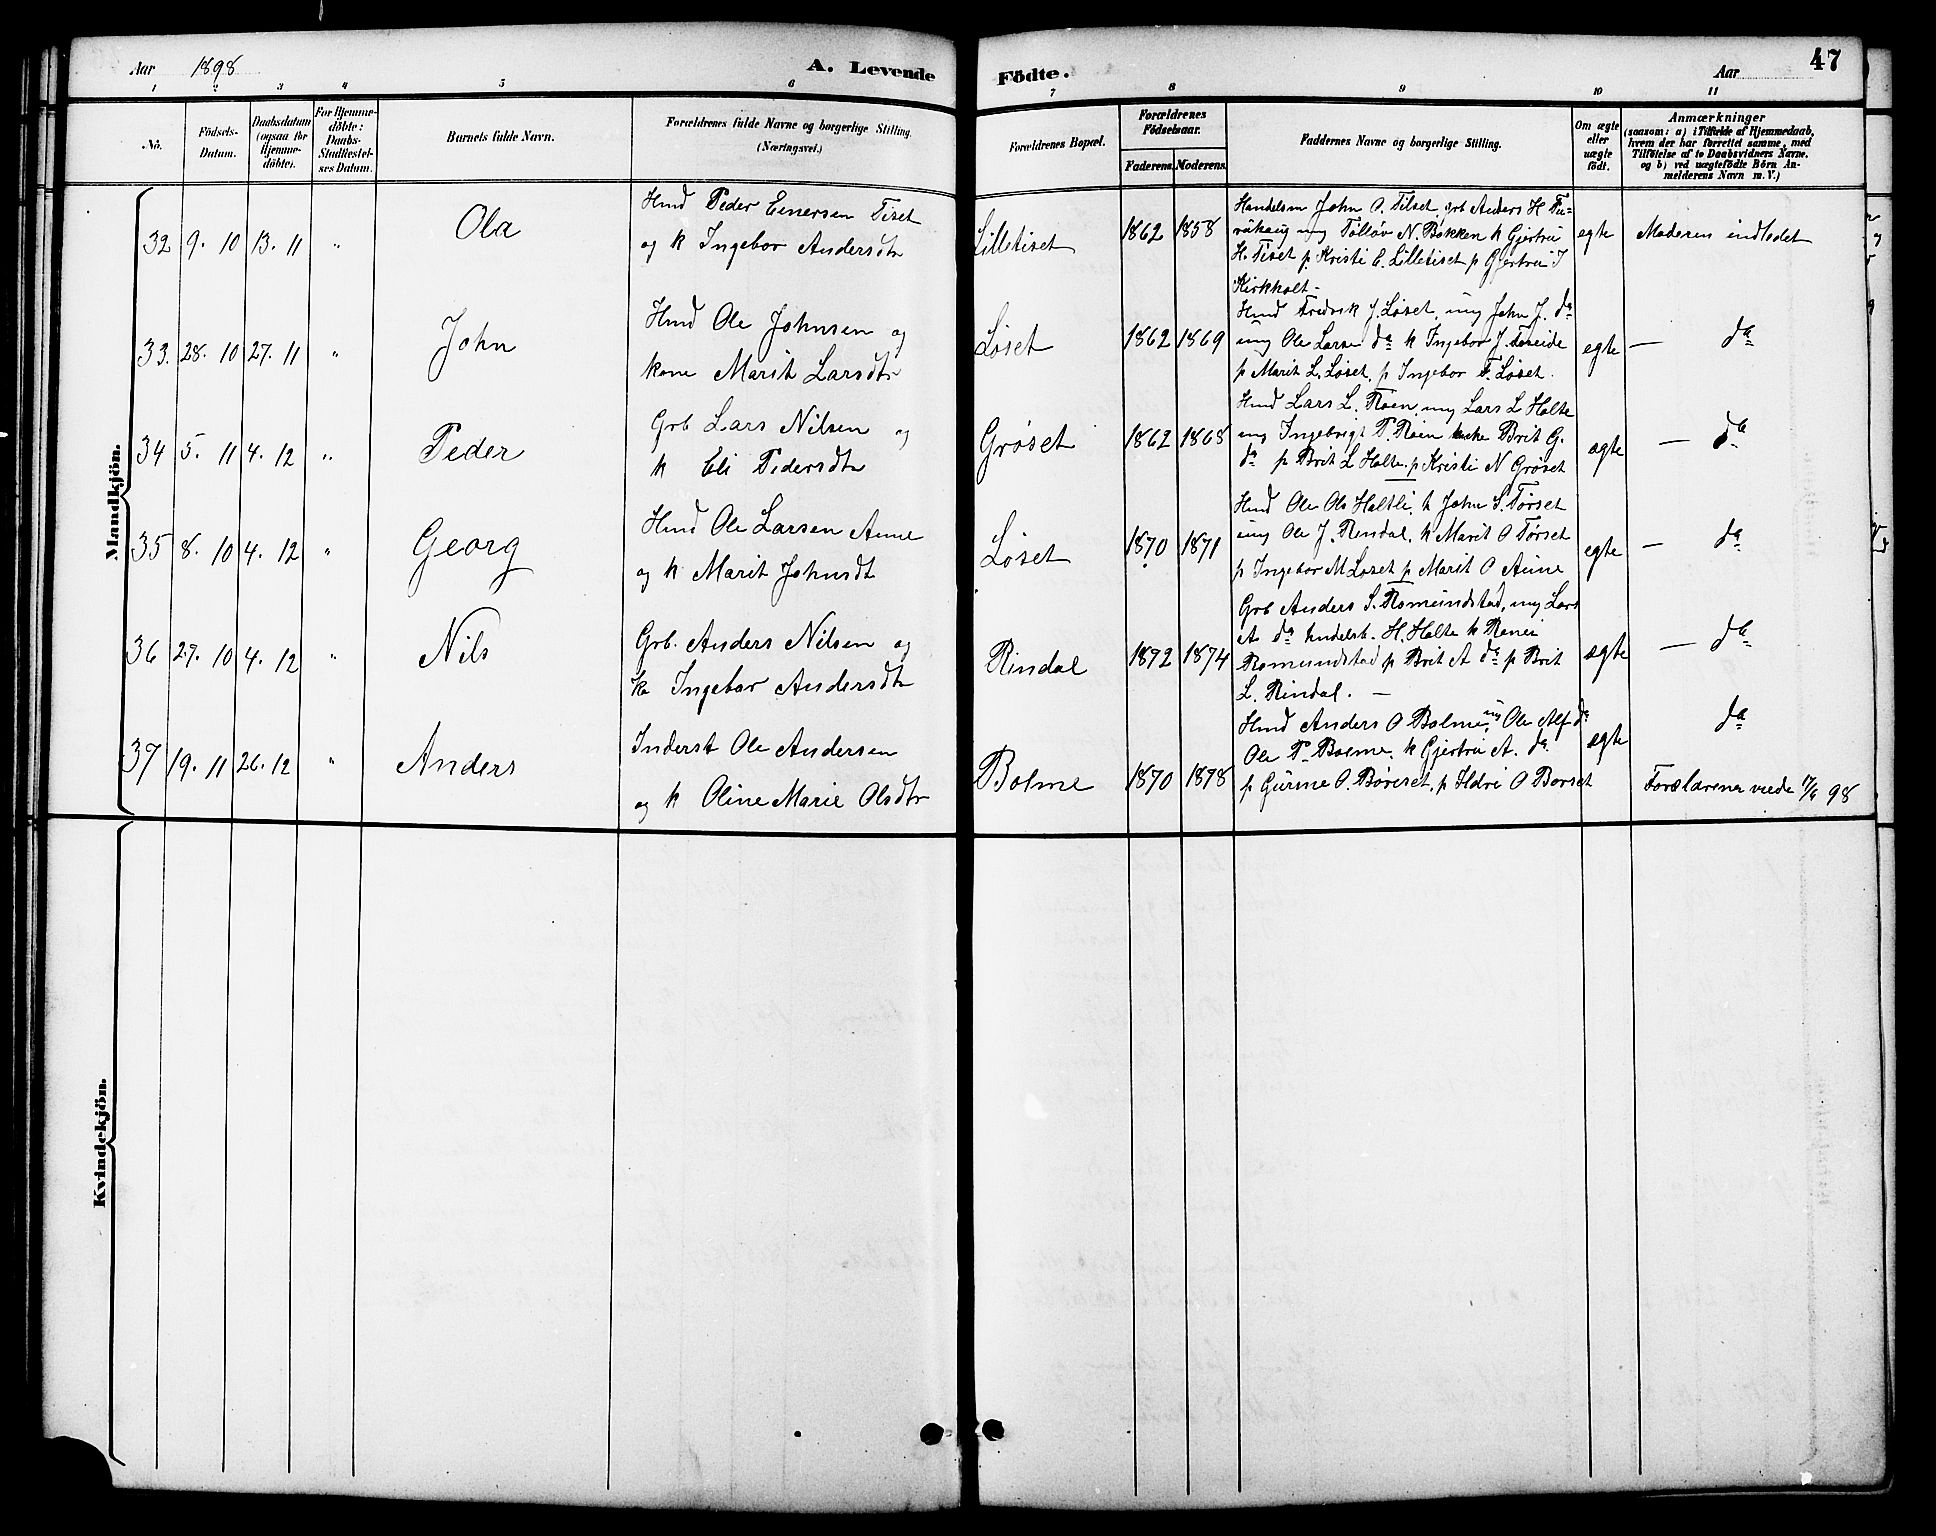 Aar 1898
A. Levende Födte.
Aar 47
1 2 3 4 5 6 7 8 9 10 11
No.
Födsels-Datum.
Daabsdatum (ogsaa for Hjemme-döbte).
For Hjemme-döbte: Daabs-Stadfæstel-ses Datum.
Barnets fulde Navn.
Forældrenes fulde Navne og borgerlige Stilling. (Næringsvei.)
Forældrenes Bopæl.
Forældrenes Födselsaar.
Faderens. Moderens.
Faddernes Navne og borgerlige Stilling.
Om ægte eller uægte födt.
Anmærkninger
(saasom: a) i Tilfælde af Hjemmedaab,
hvem der har forrettet samme, med
Tilföielse af to Daabsvidners Navne,
og b) ved uægtefödte Börn An-
melderens Navn m. V.)
Mandkjön.
32 9. 10 13. 11 " Ola
Hmd Peder Einersen Tiset
og k Ingebor Andersdtr
Lilletiset 1862 1858
Handelsm John O. Tilset, grb Anders H
ung N. Bakken k Gjertru
H. Tiset p. Kristi E. Lilletiset p Gjertru J
Kirkholt -
egte Moderen indledet
33. 28. 10 27. 11 " John
Hmd Ole Johnsen og
kone Marit Larsdtr
Løset 1862 1869
Hmd Fredrik J. Løset, ung John J. da
ung Ole Larse da k Ingebor J.
p Marit L. Løset, p Ingebor F. Løset.
egte — da
34 5. 11 4. 12 " Peder
Grb Lars Nilsen og
k Eli Pedersdtr
Grøset 1862 1868
Hmd Lars L. Roen, ung Lars L Halte
ung Ingebrigt P. Roen Enke Brit G.
da p Brit L Halte, p Kristi N Grøset
ægte — da
35 8. 10 4. 12 " Georg
Hmd Ole Larsen Aune
og k Marit Johnsdt
Løset 1870 1871
Hmd Ole Ols Haltli, k John S. Tørset
ung Ole J. Rindal, k Marit O Tørset
p Ingebor M Løset p Marit O Aune
egte — da
36 27. 10 4. 12 " Nils
Grb. Anders Nilsen og
k Ingebor Andersdtr
Rindal 1872 1874
Grb Anders S. Romundstad, ung Lars
A da H. Halte k
Romundstad p Brit A da p Brit
L. Rindal. —
ægte — da
37 19. 11 26. 12 " Anders
Inderst Ole Andersen
og k Oline Marie Olsdtr
Bolme 1870 1878
Hmd Anders O Bolme, ung Ole Alf da
Ole P. Bolme, k Gjertru A. da
p O. Børeset, p Ildri O Børset
ægte da
98
Kvindekjön.